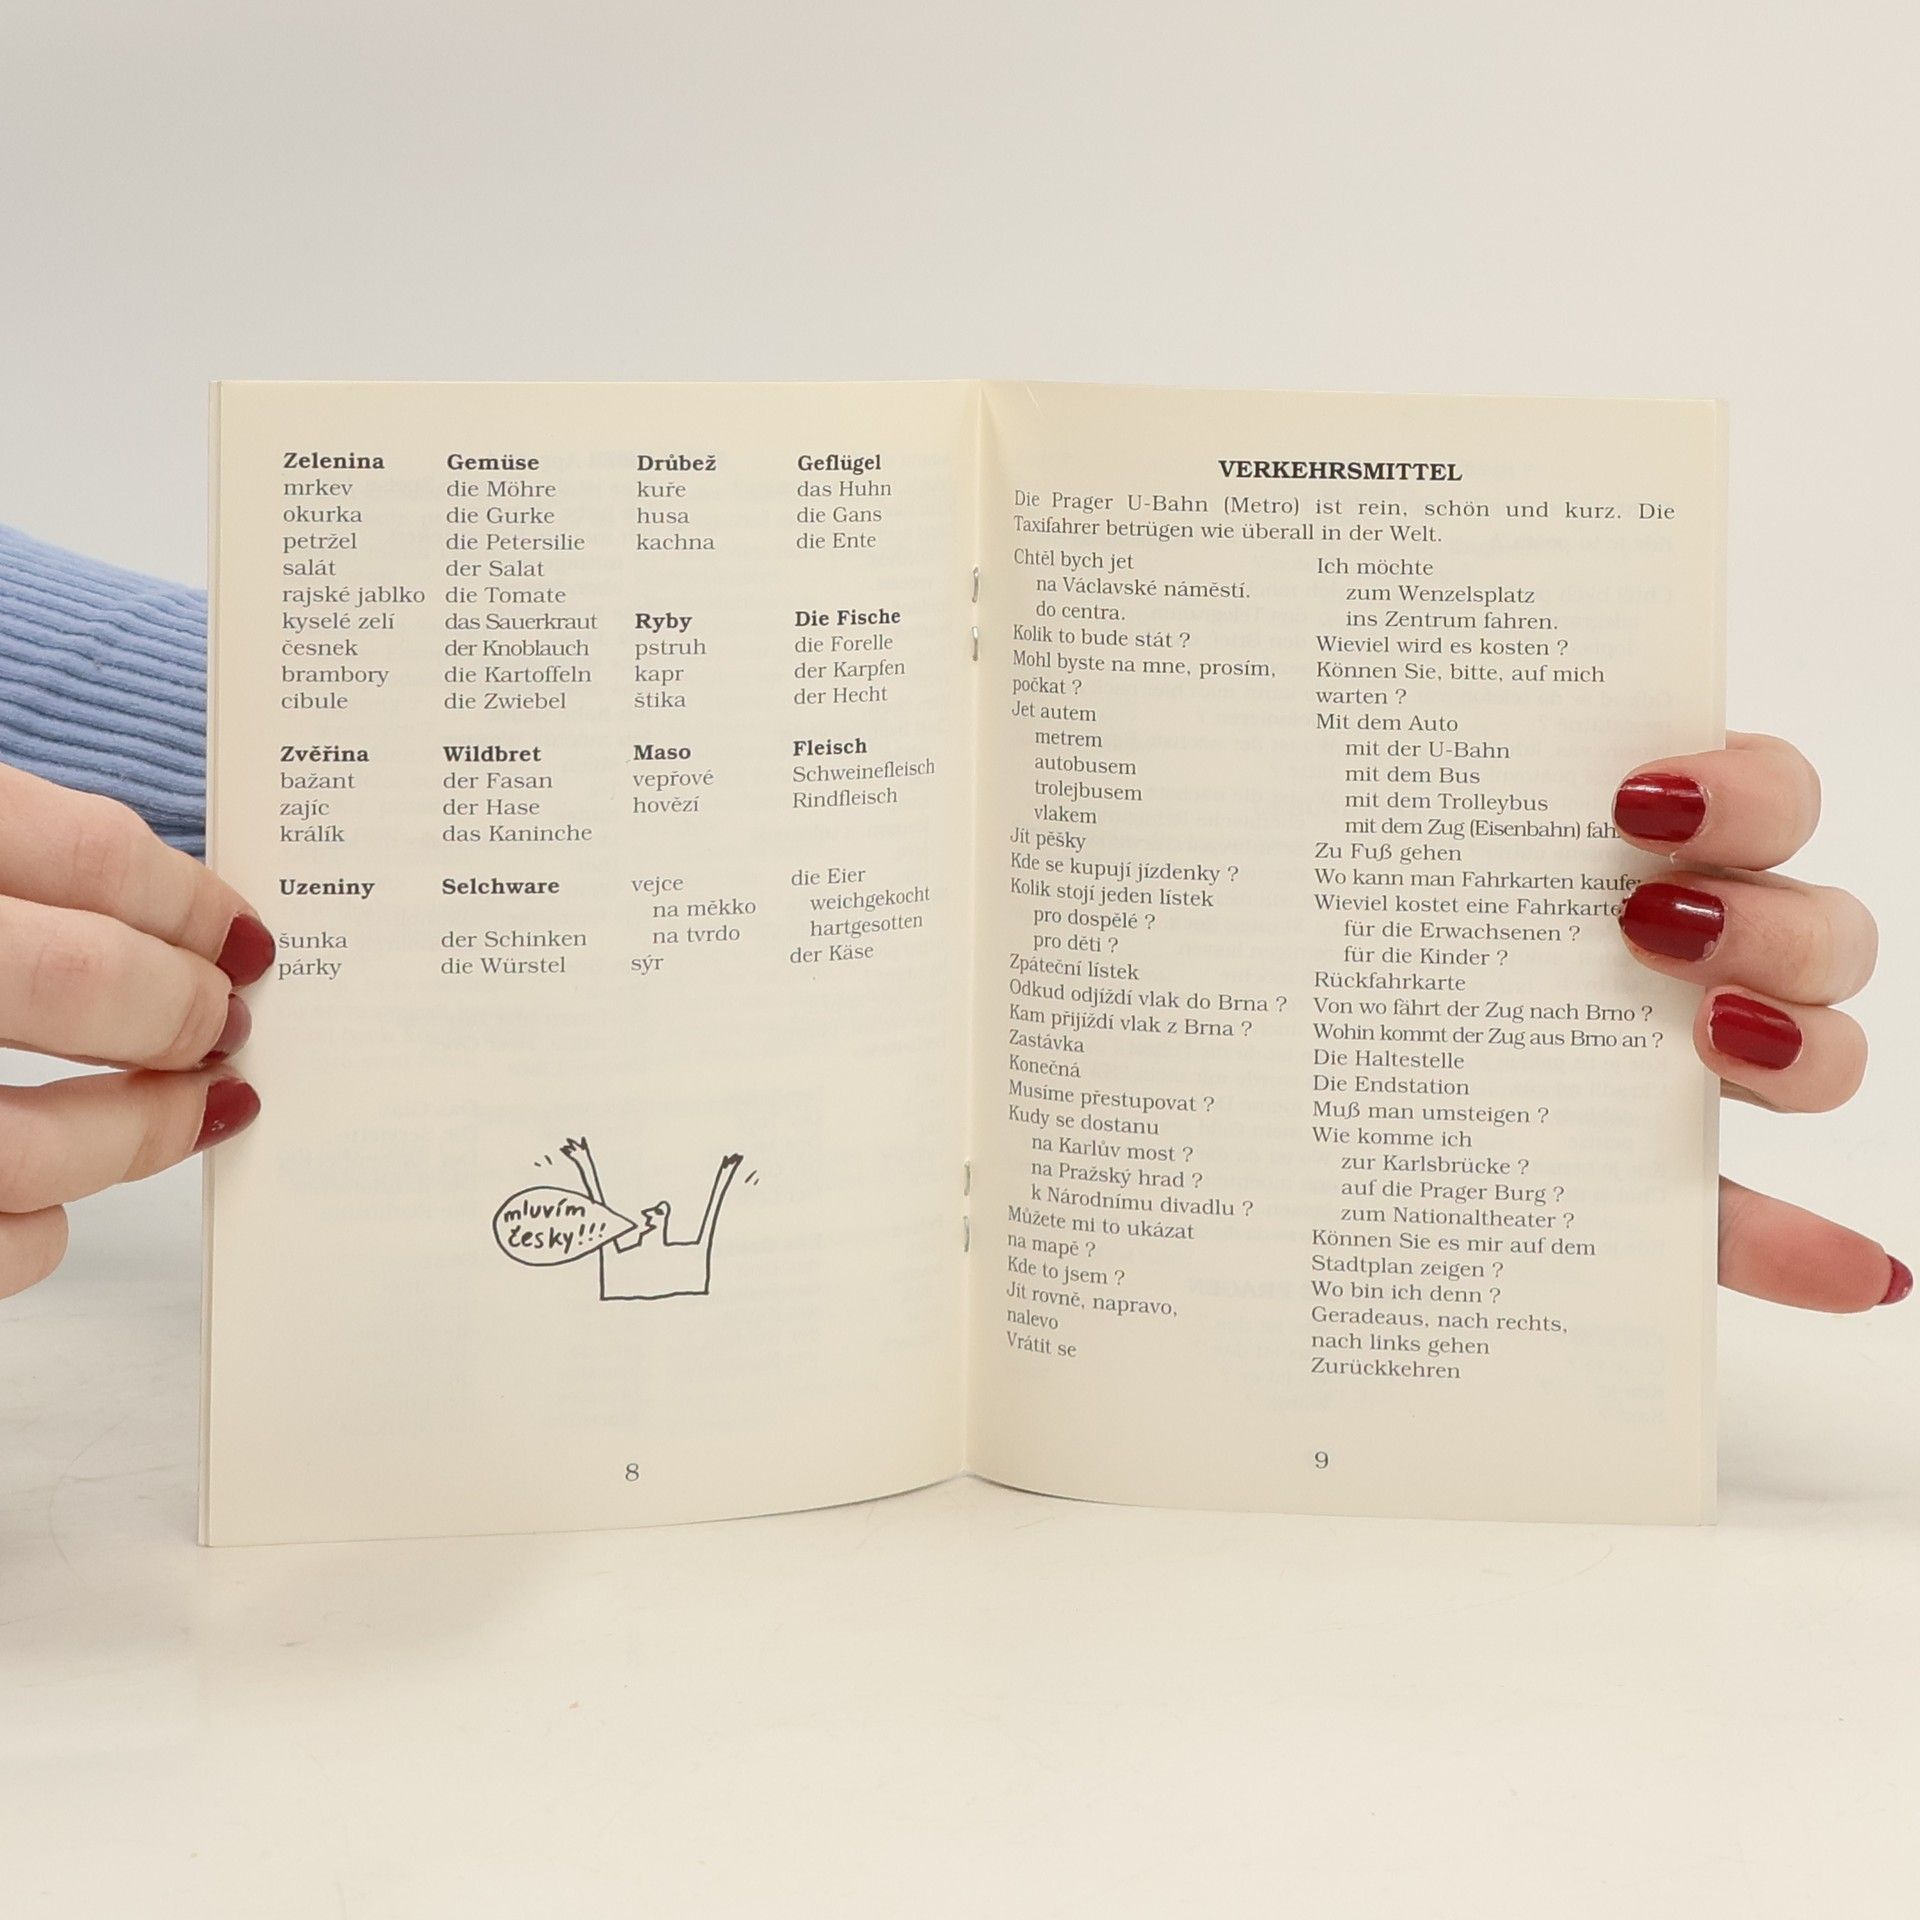 Zelenina Gemüse Drůbež Geflügel
mrkev die Möhre kuře das Huhn
okurka die Gurke husa die Gans
petržel die Petersilie kachna die Ente
salát der Salat
rajské jablko die Tomate
kyselé zelí das Sauerkraut Ryby Die Fische
česnek der Knoblauch pstruh die Forelle
brambory die Kartoffeln kapr der Karpfen
cibule die Zwiebel štika der Hecht
Zvěřina Wildbret Maso Fleisch
bažant der Fasan vepřové Schweinefleisch
zajíc der Hase hovězí Rindfleisch
králík das Kaninche
Uzeniny Selchware vejce die Eier
na měkko weichgekocht
šunka der Schinken na tvrdo hartgesotten
párky die Würstel sýr der Käse
mluvím
česky!!!
8
VERKEHRSMITTEL
Die Prager U-Bahn (Metro) ist rein, schön und kurz. Die
Taxifahrer betrügen wie überall in der Welt.
Chtěl bych jet Ich möchte
na Václavské náměstí. zum Wenzelsplatz
do centra. ins Zentrum fahren.
Kolik to bude stát ? Wieviel wird es kosten ?
Mohl byste na mne, prosím, Können Sie, bitte, auf mich
počkat ? warten ?
Jet autem Mit dem Auto
metrem mit der U-Bahn
autobusem mit dem Bus
trolejbusem mit dem Trolleybus
vlakem mit dem Zug (Eisenbahn)
Jít pěšky Zu Fuß gehen
Kde se kupují jízdenky ? Wo kann man Fahrkarten
Kolik stojí jeden lístek Wieviel kostet eine Fahrkarte
pro dospělé ? für die Erwachsenen ?
pro děti ? für die Kinder ?
Zpáteční lístek Rückfahrkarte
Odkud odjíždí vlak do Brna ? Von wo fährt der Zug nach Brno ?
Kam přijíždí vlak z Brna ? Wohin kommt der Zug aus Brno an ?
Zastávka Die Haltestelle
Konečná Die Endstation
Musíme přestupovat ? Muß man umsteigen ?
Kudy se dostanu Wie komme ich
na Karlův most ? zur Karlsbrücke ?
na Pražský hrad ? auf die Prager Burg ?
k Národnímu divadlu ? zum Nationaltheater ?
Můžete mi to ukázat Können Sie es mir auf dem
na mapě ? Stadtplan zeigen ?
Kde to jsem ? Wo bin ich denn ?
Jít rovně, napravo, Geradeaus, nach rechts,
nalevo nach links gehen
Vrátit se Zurückkehren
9